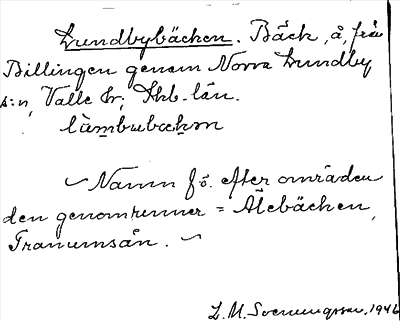 Lundbybäcken. Bäck, å, från
Billingen genom Norra Lundby
s:n, Valle hd; Skb. län.
làmbubæhm
~ Namn fö. efter områden
den genomrinner = Ålebäcken,
Tranumsån. ~
L. M. Svenungsson, 1946